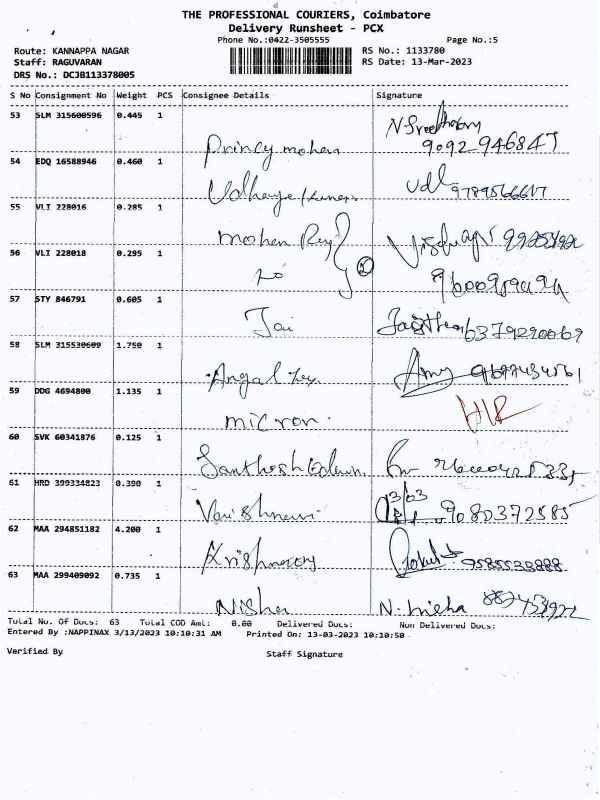 THE PROFESSIONAL COURIERS, Coimbatore
Delivery Runsheet - PCX
Phone No.:0422-3505555 Page No.:5
Route: KANNAPPA NAGAR RS No.: 1133780
Staff: RAGUVARAN RS Date: 13-Mar-2023
DRS No.: DCJB113378005
S No Consignment No Weight PCS Consignee Details Signature
53 SLM 315600596 0.445 1
Princy mohan 9092946847
54 EDQ 16588946 0.460 1
Udhaya
55 VLI 228016 0.285 1
Mohan Raj
56 VLI 228018 0.295 1
57 STY 846791 0.605 1
Jai
58 SLM 315530609 1.750 1
Angal
59 DDG 4694800 1.135 1
micron.
60 SVK 60341876 0.125 1
Santhosh
61 HRD 399334823 0.390 1
13/03
Vaishnavi 9080372585
62 MAA 294851182 4.200 1
Gokul 9585538888
63 MAA 299409092 0.735 1
Nisha N. Nisha
Total No. Of Docs: 63 Total COD Amt: 0.00 Delivered Docs: Non Delivered Docs:
Entered By :NAPPINAX 3/13/2023 10:10:31 AM Printed On: 13-03-2023 10:10:50
Verified By Staff Signature